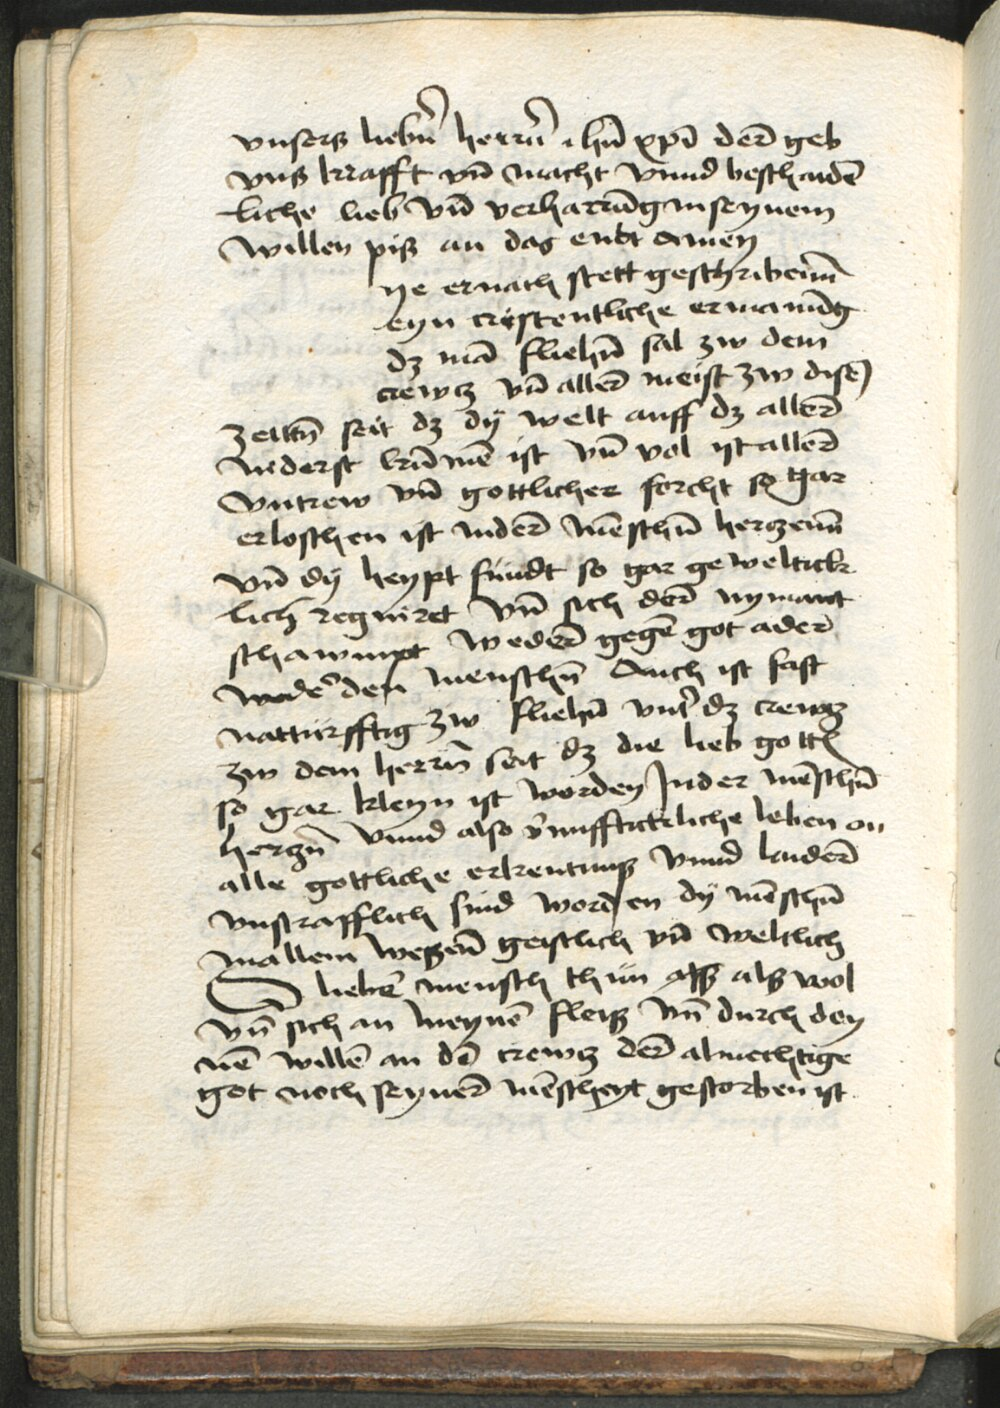 vnserß liebñ herrñ ihũ xpĩ der̃ geb
vnß krafft vñ macht vnnd beschaidẽ
liche lieb vñ verharrũg in seynem
willen piß an das endt Amen
ye ernach stett geschribenñ
eyn cristentliche ermanũg
dz mã fliehñ sal zw dem
crewtz vñ aller̃ meist zw disẽ
zeittñ seit dz dÿ welt auff dz aller̃
niderst kũmẽ ist vñ vol ist aller̃
vntrew vñ gottlicher forcht so gar
erloschen ist in der̃ mẽschñ herczenñ
vñ dÿ heypt sundt so gar geweltick
lich regniret vñ sich der̃ nymant
schawmpt weder̃ gegẽ got ader̃
wedẽ den menschñ Auch ist fast
notturfftig zw fliehñ vnter dz crewtz
zw dem herrñ seit dz die lieb gottes
so gar kleyn ist worden In der mẽschñ
hertzñ vnnd also vnufftickliche leben on
alle gottliche erkentnuß vnnd laider̃
vnstrafflich sind worden dÿ mẽschñ
in allem weßenñ geistlich vñ weltlich
O lieber mensch thun alß alß wol
vñ sich an meynẽ fleiß vñ durch dey
nẽ willẽ an dẽ crewtz der̃ almechtige
got noch seyner̃ mẽscheyt gestorben ist